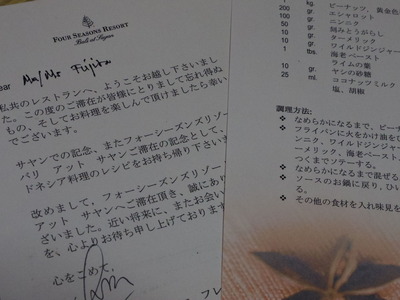 FOUR SEASONS RESORT
Bali at Sayan
ear Ma/Mr Fujita
私共のレストランへ、ようこそお越し下さいまし
た。この度のご滞在が皆様にとりまして忘れ得ぬ
もの、そしてお料理を楽しんで頂けましたら幸い
でございます。
サヤンでの記念、またフォーシーズンズリゾー
バリ アット サヤンご滞在の記念として、
ドネシア料理のレシピをお持ち帰り下さいま
改めまして、フォーシーズンズリゾー
アット サヤンへご滞在頂き、誠にあり
ざいました。近い将来に、またお会い
を、心よりお待ち申し上げております
心をこめて、
フレ
1 kg. ピーナッツ、黄金色
200 gr. エシャロット
100 gr. ニンニク
50 gr. 刻みとうがらし
10 gr. ターメリック
10 gr. ワイルドジンジャー
1 tbs. 海老ペースト
ライムの葉
10 gr. ヤシの砂糖
25 ml. ココナッツミルク
塩、胡椒
調理方法:
なめらかになるまで、ピー
フライパンに火をかけ脂を
ンニク、ワイルドジンジャ
ーメリック、海老ペースト、
つくまでソテーする。
なめらかになるまで混ぜる
ソースのお鍋に戻り、ひい
る。
その他の食材を入れ味見を